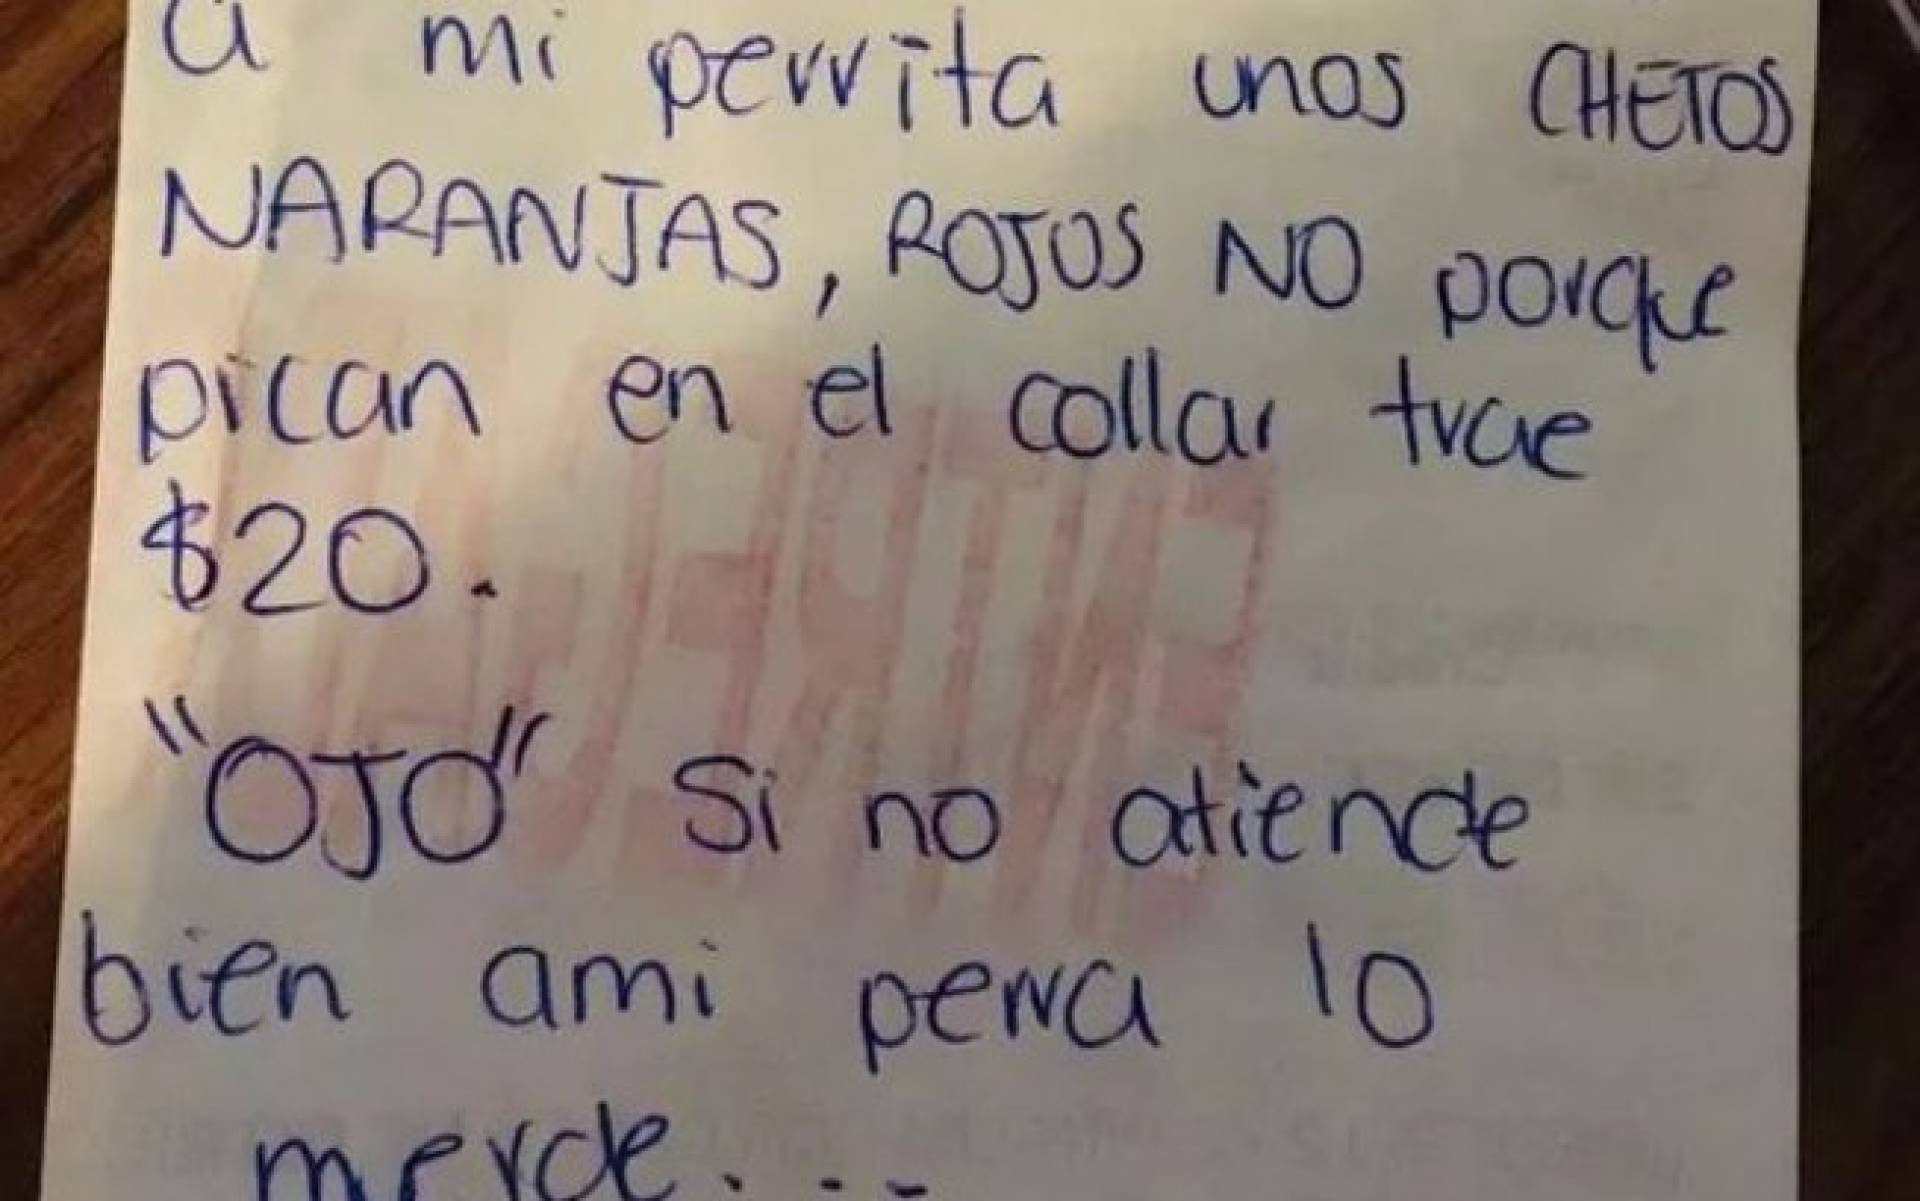 a mi perrita unos CHETOS
NARANJAS, ROJOS NO porque
pican en el collar trae
$20.
"OJO" Si no atiende
bien ami perra lo
merde...